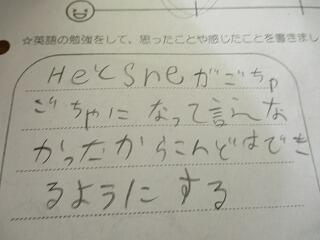 ☆英語の勉強をして、思ったことや感じたことを書きまし
HeとSheがごちゃ
ごちゃになって言えな
かったからこんどはでき
るようにする